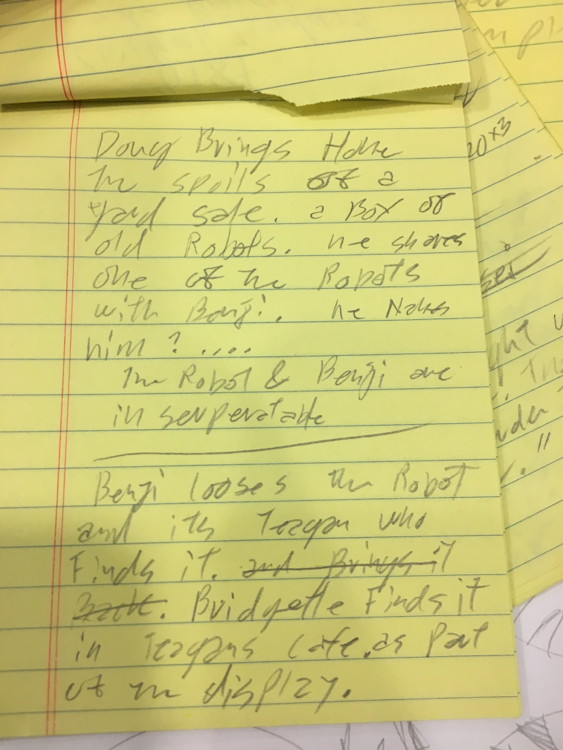 Doug Brings Home
the spoils of a
yard sale. a Box of
old Robots. he shares
one of the Robots
with Benji. he Names
him ? ....
The Robot & Benji are
in serperatable
Benji looses the Robot
and its Teagan who
Finds it. and Brings it
Back. Bridgette Finds it
in Teagans cafe. as Part
of the display.
20x3